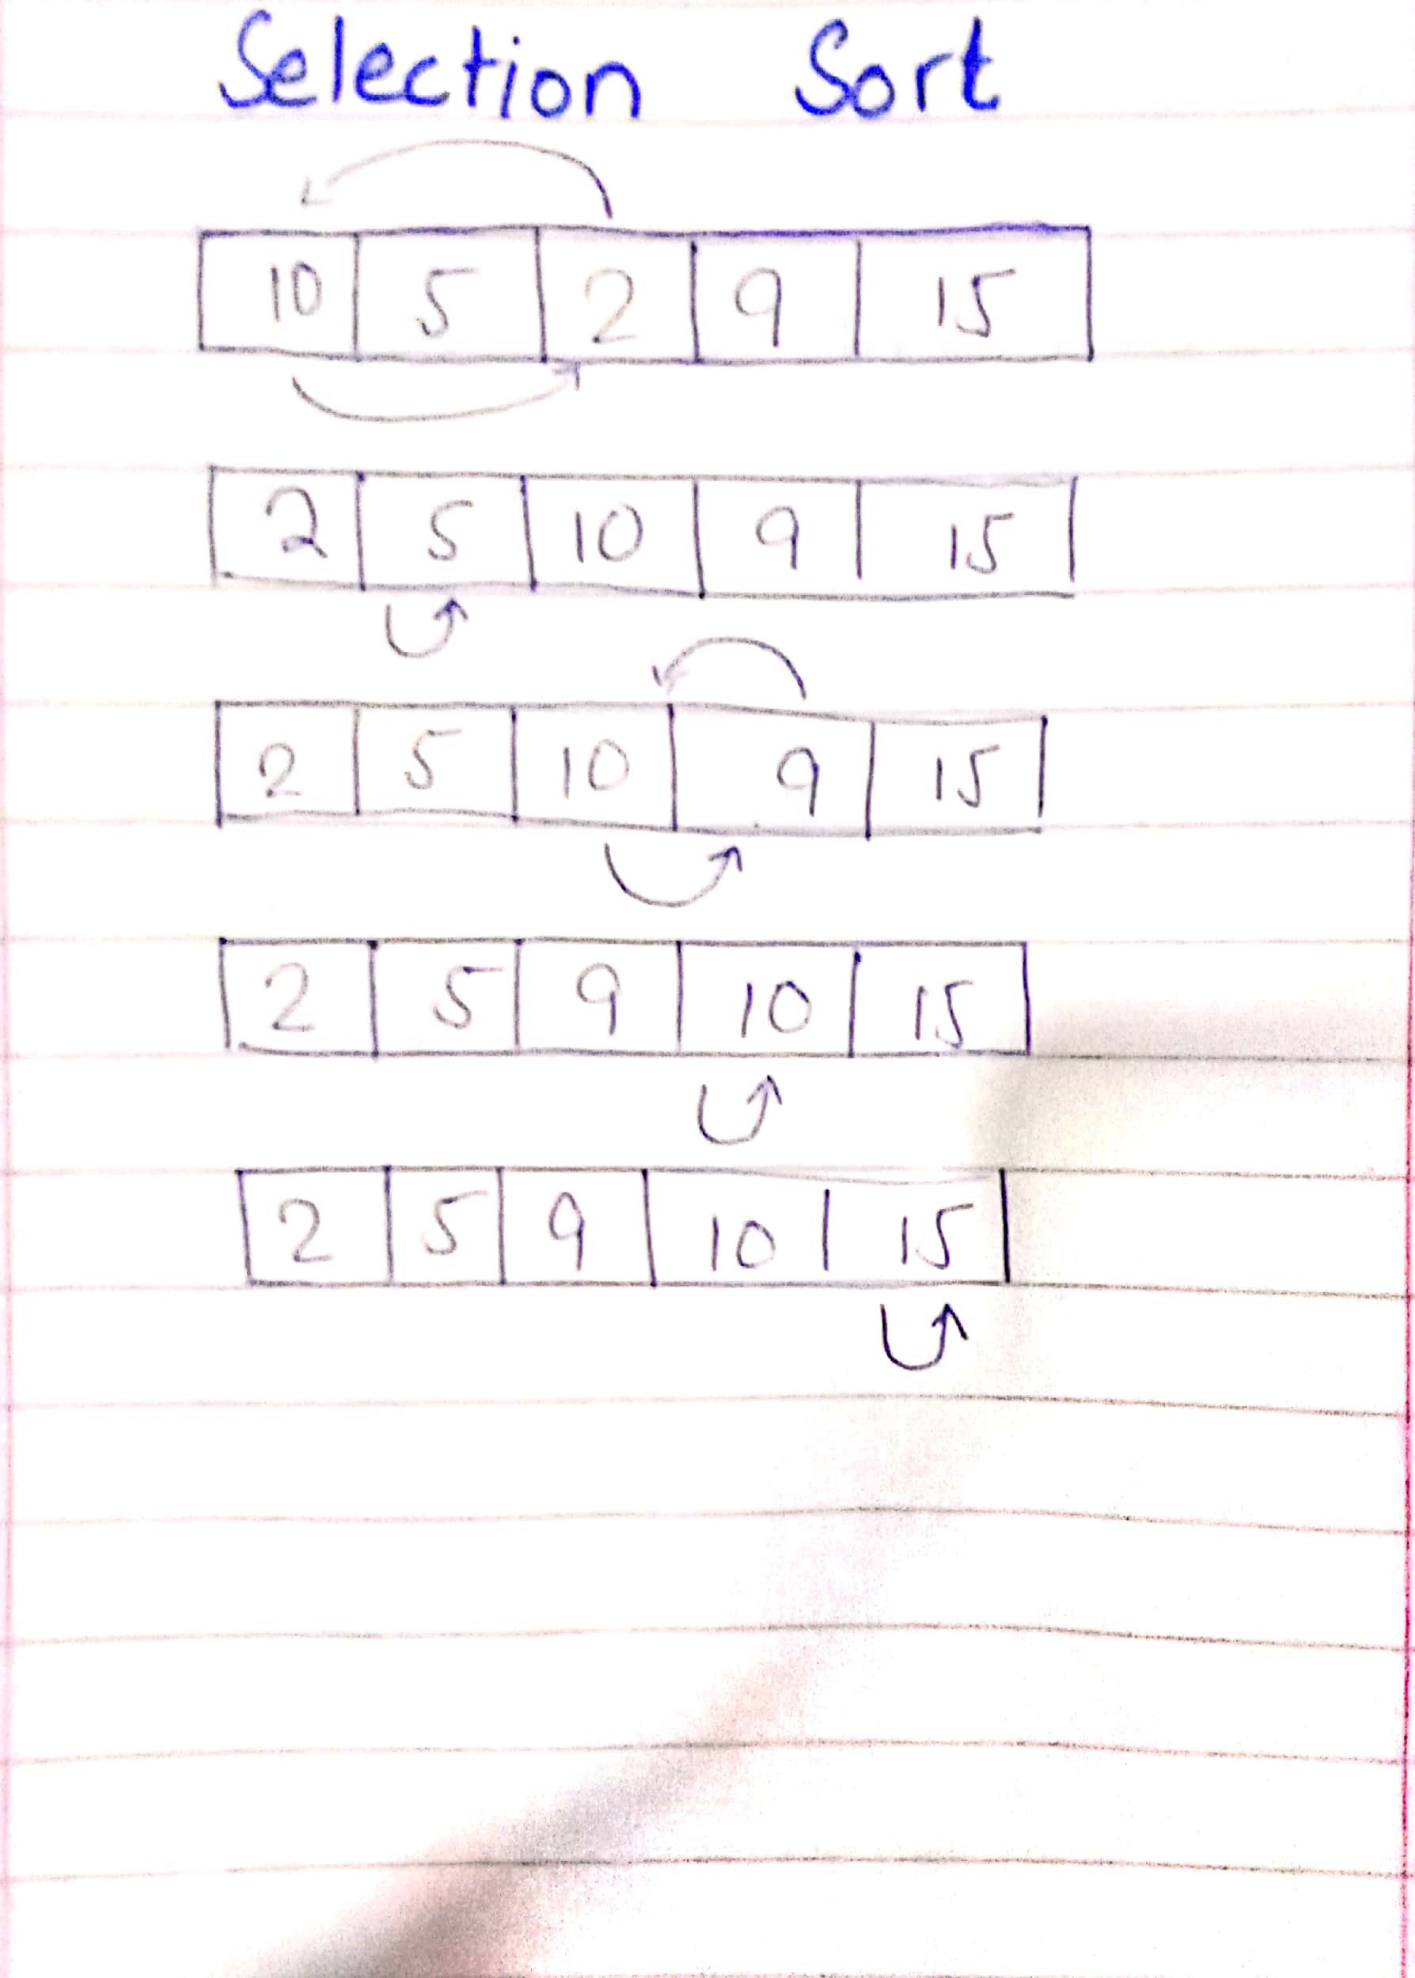 Selection Sort
10 5 2 9 15
2 5 10 9 15
2 5 10 9 15
2 5 9 10 15
2 5 9 10 15